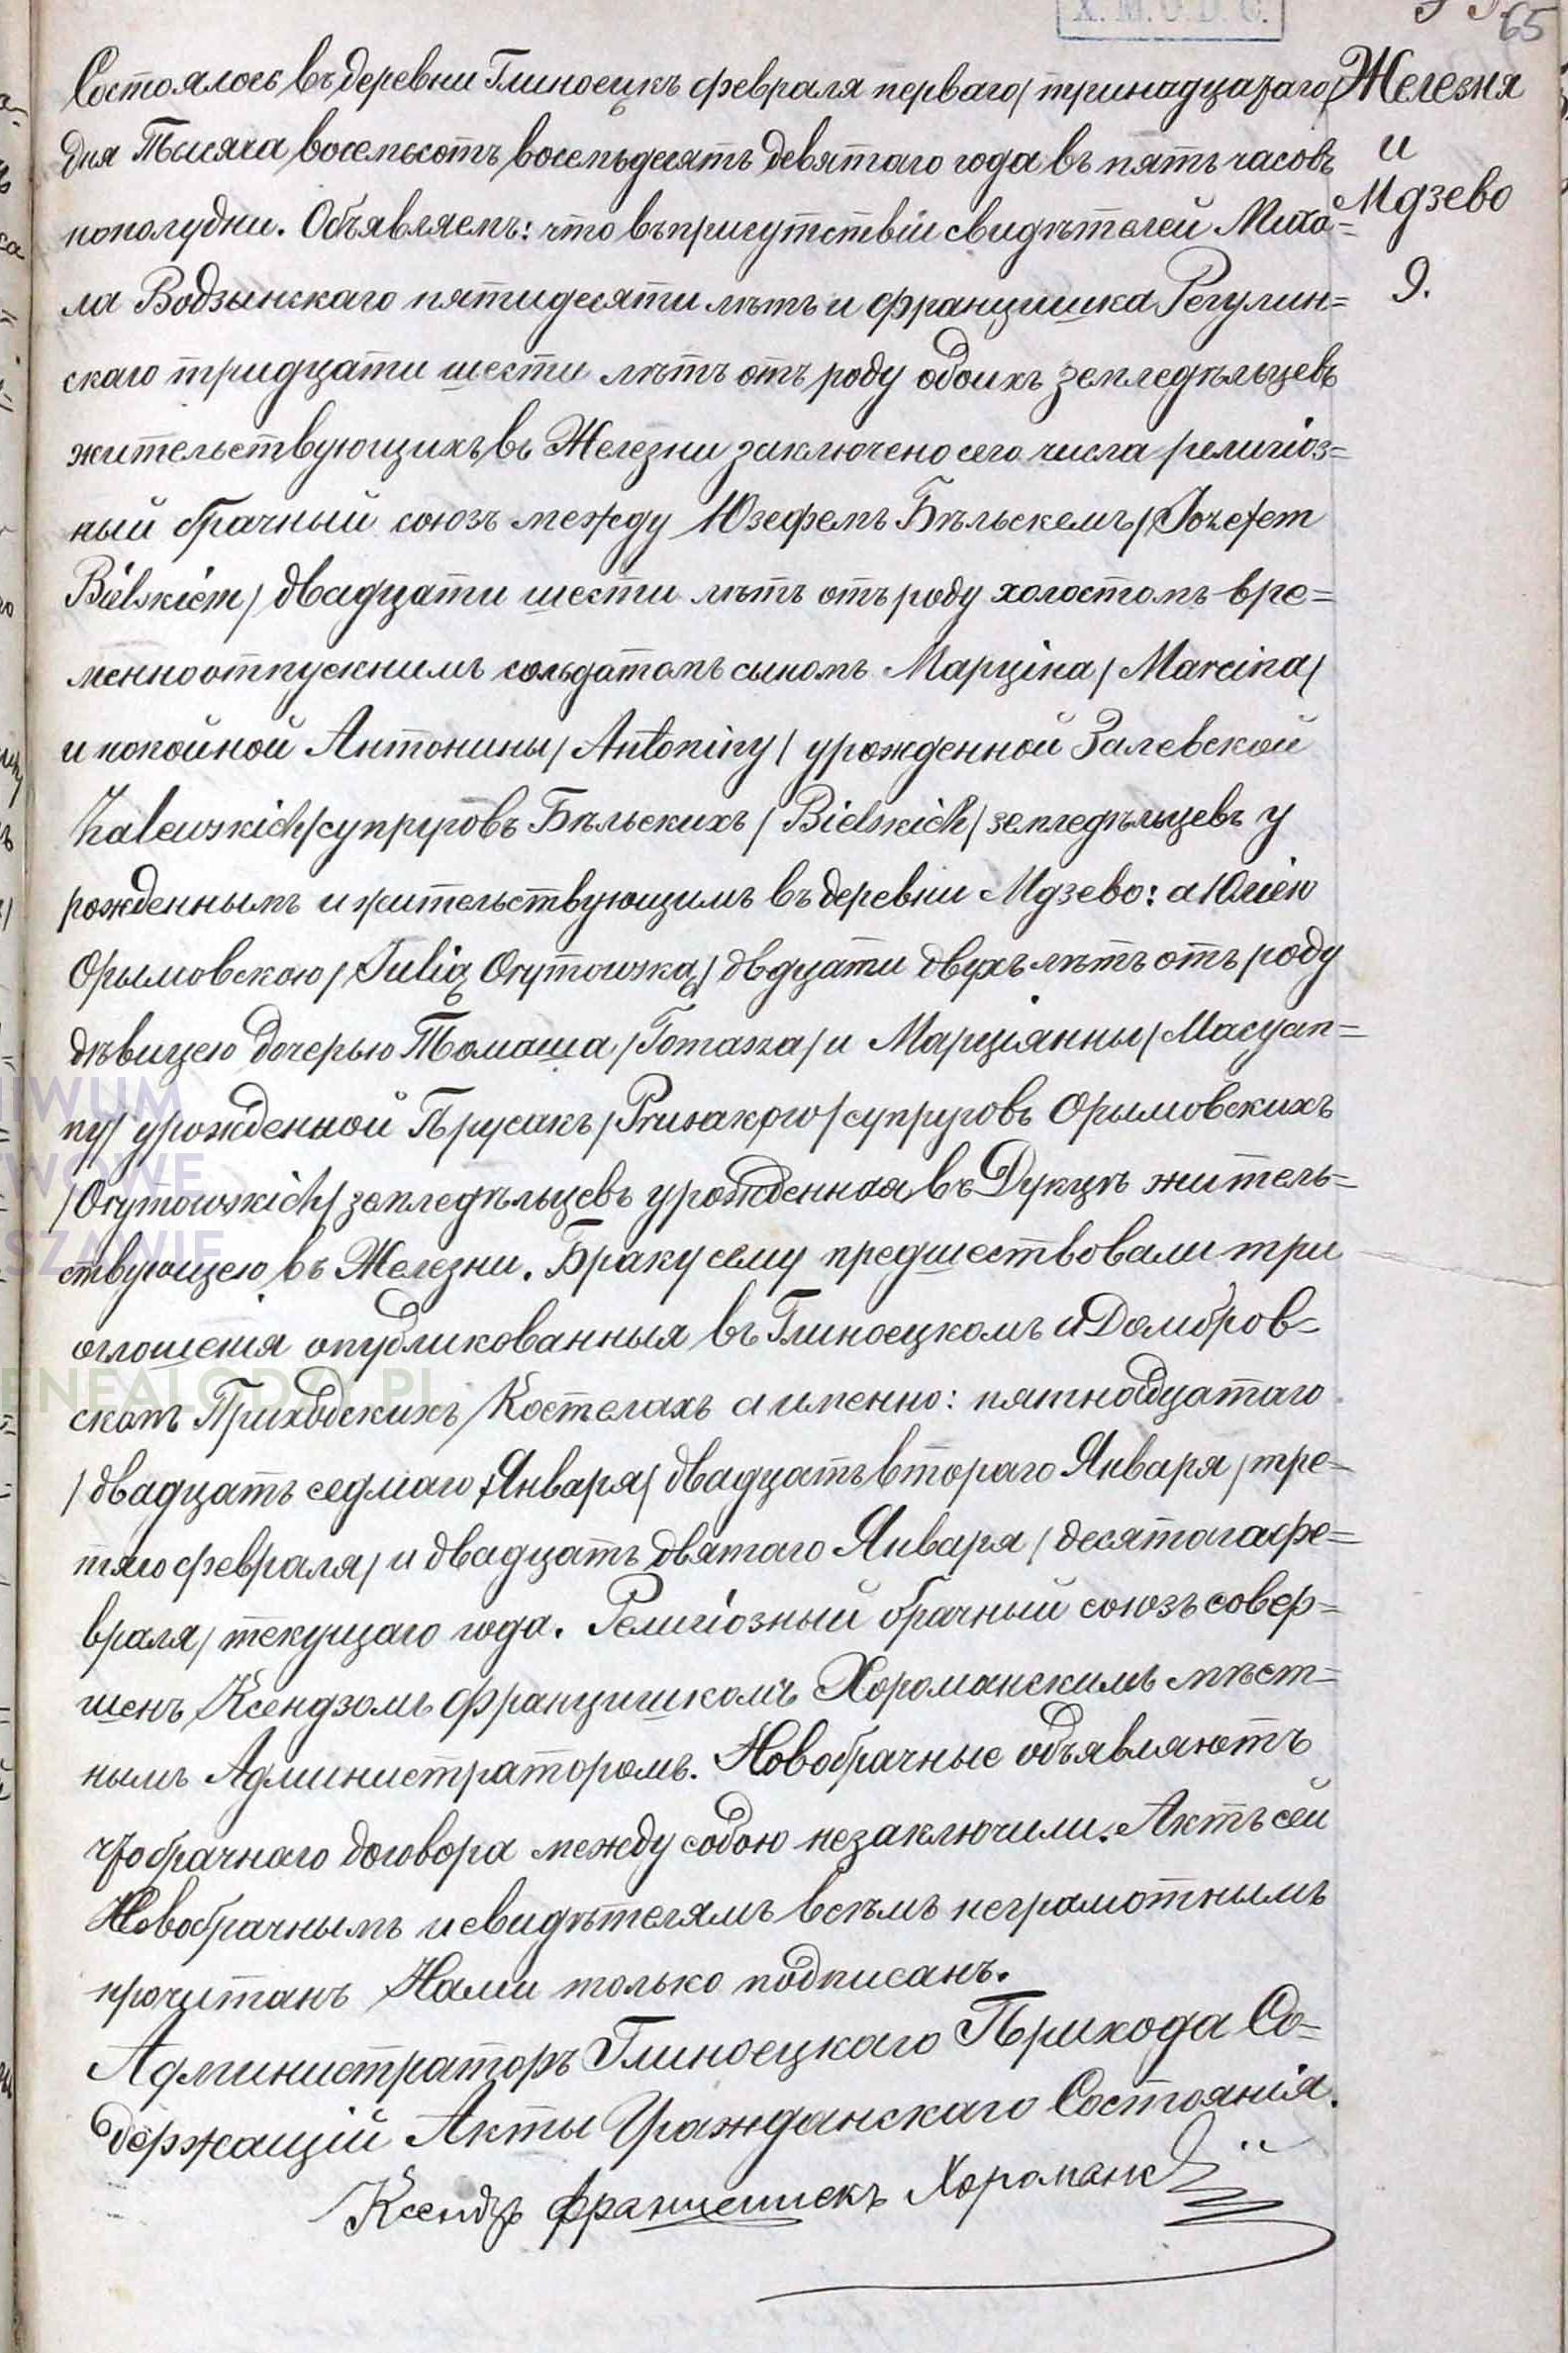 X. M. O. D. G.
65
Состоялось въ деревни Глиноецкъ февраля перваго/тринадцатаго/
Железня
дня Тысяча восемьсотъ восемьдесятъ девятаго года въ пять часовъ
и
Мдзево
пополудни. Объявляемъ: что въ присутствіи свидѣтелей Миха=
9.
ла Водзынскаго пятидесяти лѣтъ и францишка Регулин=
скаго тридцати шести лѣтъ отъ роду обоихъ земледѣльцевъ
жительствующихъ въ Железни заключено сего числа религіоз=
ный брачный союзъ между Юзефемъ Бѣльскемъ/Jozefem
Bielskiém/ двадцати шести лѣтъ отъ роду холостомъ вре=
менноотпускнимъ сольдатомъ сыномъ Марціна/Marcina/
и покойной Антонины/Antoniny/ урожденной Залевской
Zalewskich/супруговъ Бѣльскихъ/Bielskich/земледѣльцевъ у
рожденнымъ и жительствующимъ въ деревни Мдзево: а Юліею
Орымовскою/Julią Orymowską/ двдцати двухъ лѣтъ отъ роду
дѣвицею дочерью Томаша/Tomasza/и Марціянны/Macyan=
ny/ урожденной Прусакъ/Prusakow/супруговъ Орымовскихъ
/Orymowskich/земледѣльцевъ урожденная въ Дукцѣ житель=
ствующею въ Железни. Браку сему предшествовали три
оглошенія опубликованныя въ Глиноецкомъ и Домбров=
скомъ Приходскихъ Костелахъ а именно: пятнадцатаго
/двадцать седмаго Января/ двадцать втораго Января/тре=
тяго февраля/ и двадцать двятаго Января/десятагофе=
враля/ текущаго года. Религіозный брачный союзъ совер=
шенъ Ксендзомъ Францишкомъ Хороманскимъ мѣст=
нымъ Администраторомъ. Новобрачные объявляютъ
что брачнаго договора между собою незаключили. Актъ сей
Новобрачнымъ и свидѣтелямъ всѣмъ неграмотнымъ
прочитанъ Нами только подписанъ.
Администраторъ Глиноецкаго Прихода Со=
держащій Акты Гражданскаго Состоянія.
Ксендзъ Францишекъ Хороманскій